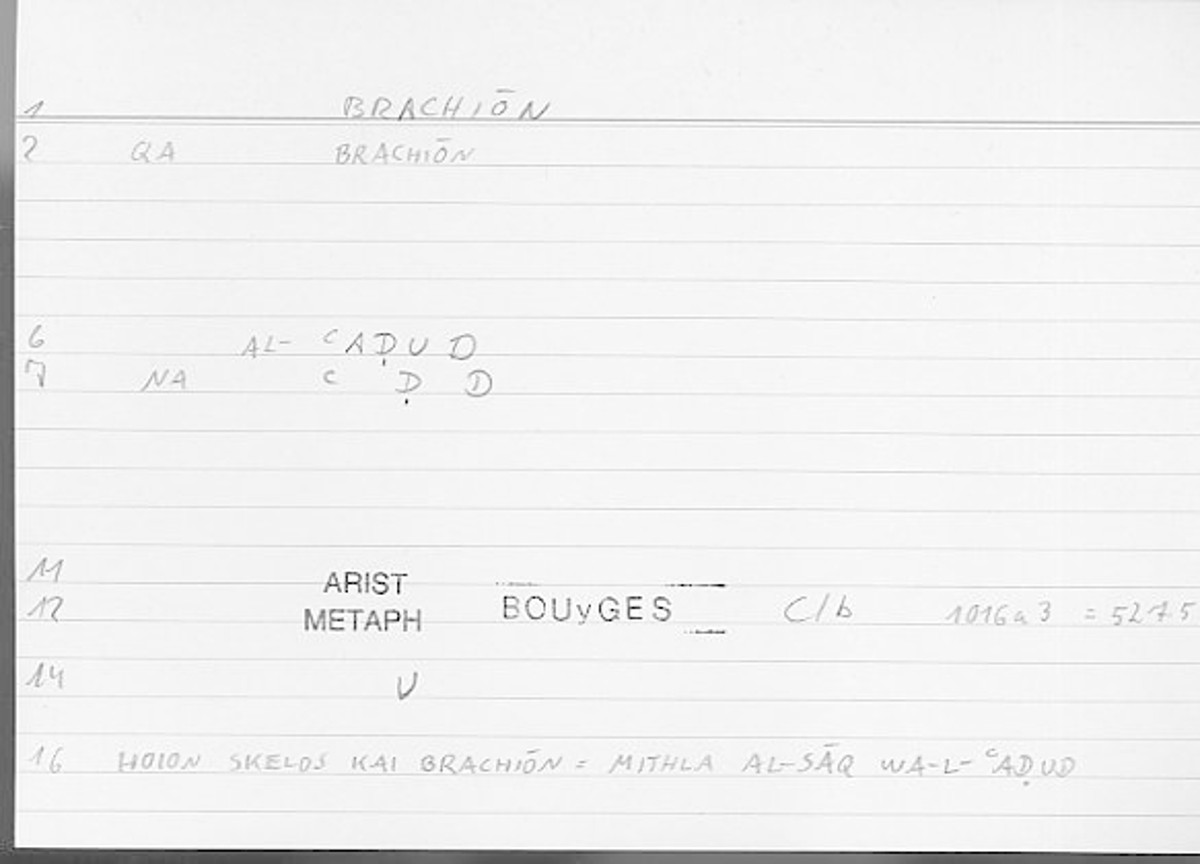 1 BRACHIŌN
2 QA BRACHIŌN
6 AL- ʿAḌUD
7 NA ʿ Ḍ D
11 ARIST
12 METAPH BOUyGES C/b 1016a3 = 527 5
14 U
16 HOION SKELOS KAI BRACHIŌN = MITHLA AL-SĀQ WA-L-ʿAḌUD